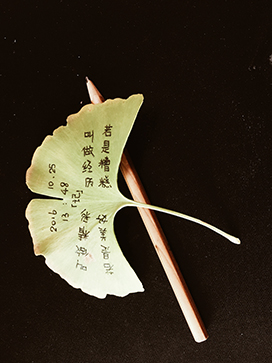 若是美好
叫做精彩
若是糟糕
叫做经历
2016.10.25
13:48
「记」